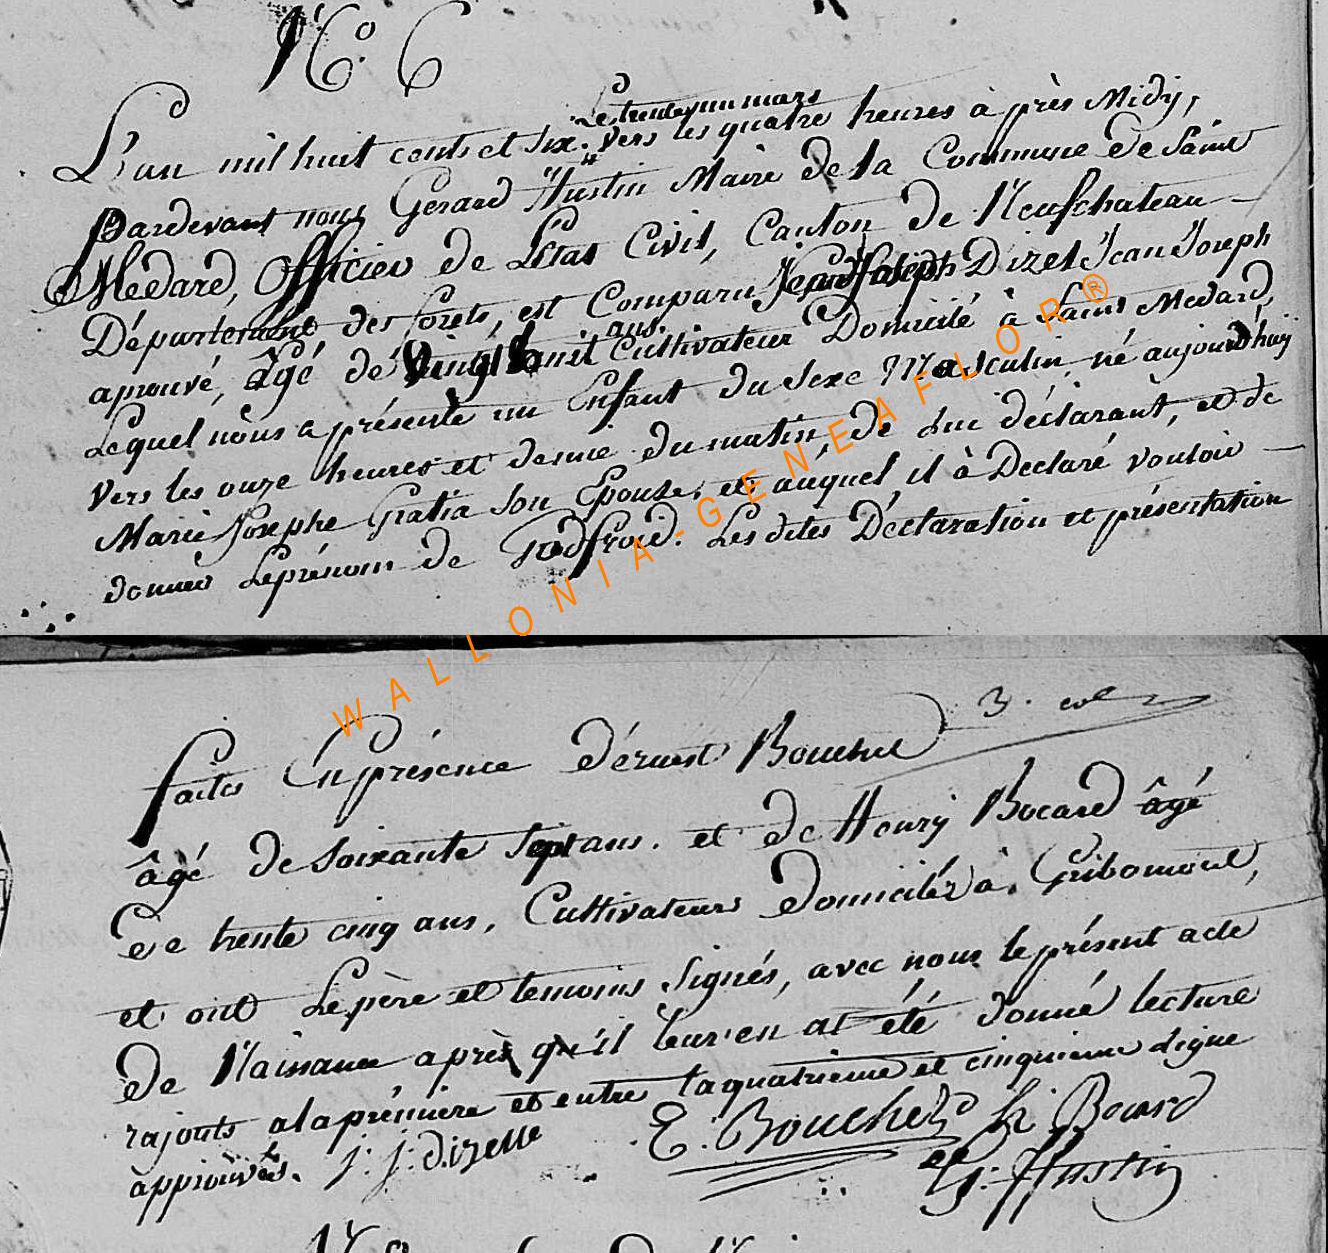 N.º 6
Le trente un mars
L'an mil huit cents et six. vers les quatre heures à près Midy,
Pardevant nous Gerard Hustin Maire de la Commune de Saint
Medard, Officier de L'Etat Civil, Canton de Neufchateau
Département des forets, est Comparu Jean Joseph Dizet Jean Joseph
ans.
aprouvé, âgé de vingt huit Cultivateur Domicilié à Saint Medard,
Lequel nous a présenté un Enfant du Sexe Masculin, né aujourd'huy
Vers les onze heures et demie du matin, de Lui déclarant, et de
Marie Josephe Gratia son Epouse, et auquel il à Declaré vouloir
donner Le prénom de Godfroid. Les dites Déclaration et présentation
3. eme
faites En présence d'ernest Bouchet
âgé de soixante Sept ans. et de Henry Bocard âgé
De trente cinq ans, Cultivateurs Domiciléz à Gribomont,
et ont Le père et temoins signés, avec nous le présent acte
De Naissance après qu'il leur en at été donné lecture
rajouts a la première et entre la quatrieme et cinquieme Ligne
approuvés. J: J: dizelle E. Bouchet H Bocard
G: Hustin
WALLONIA-GENEAFLOR®